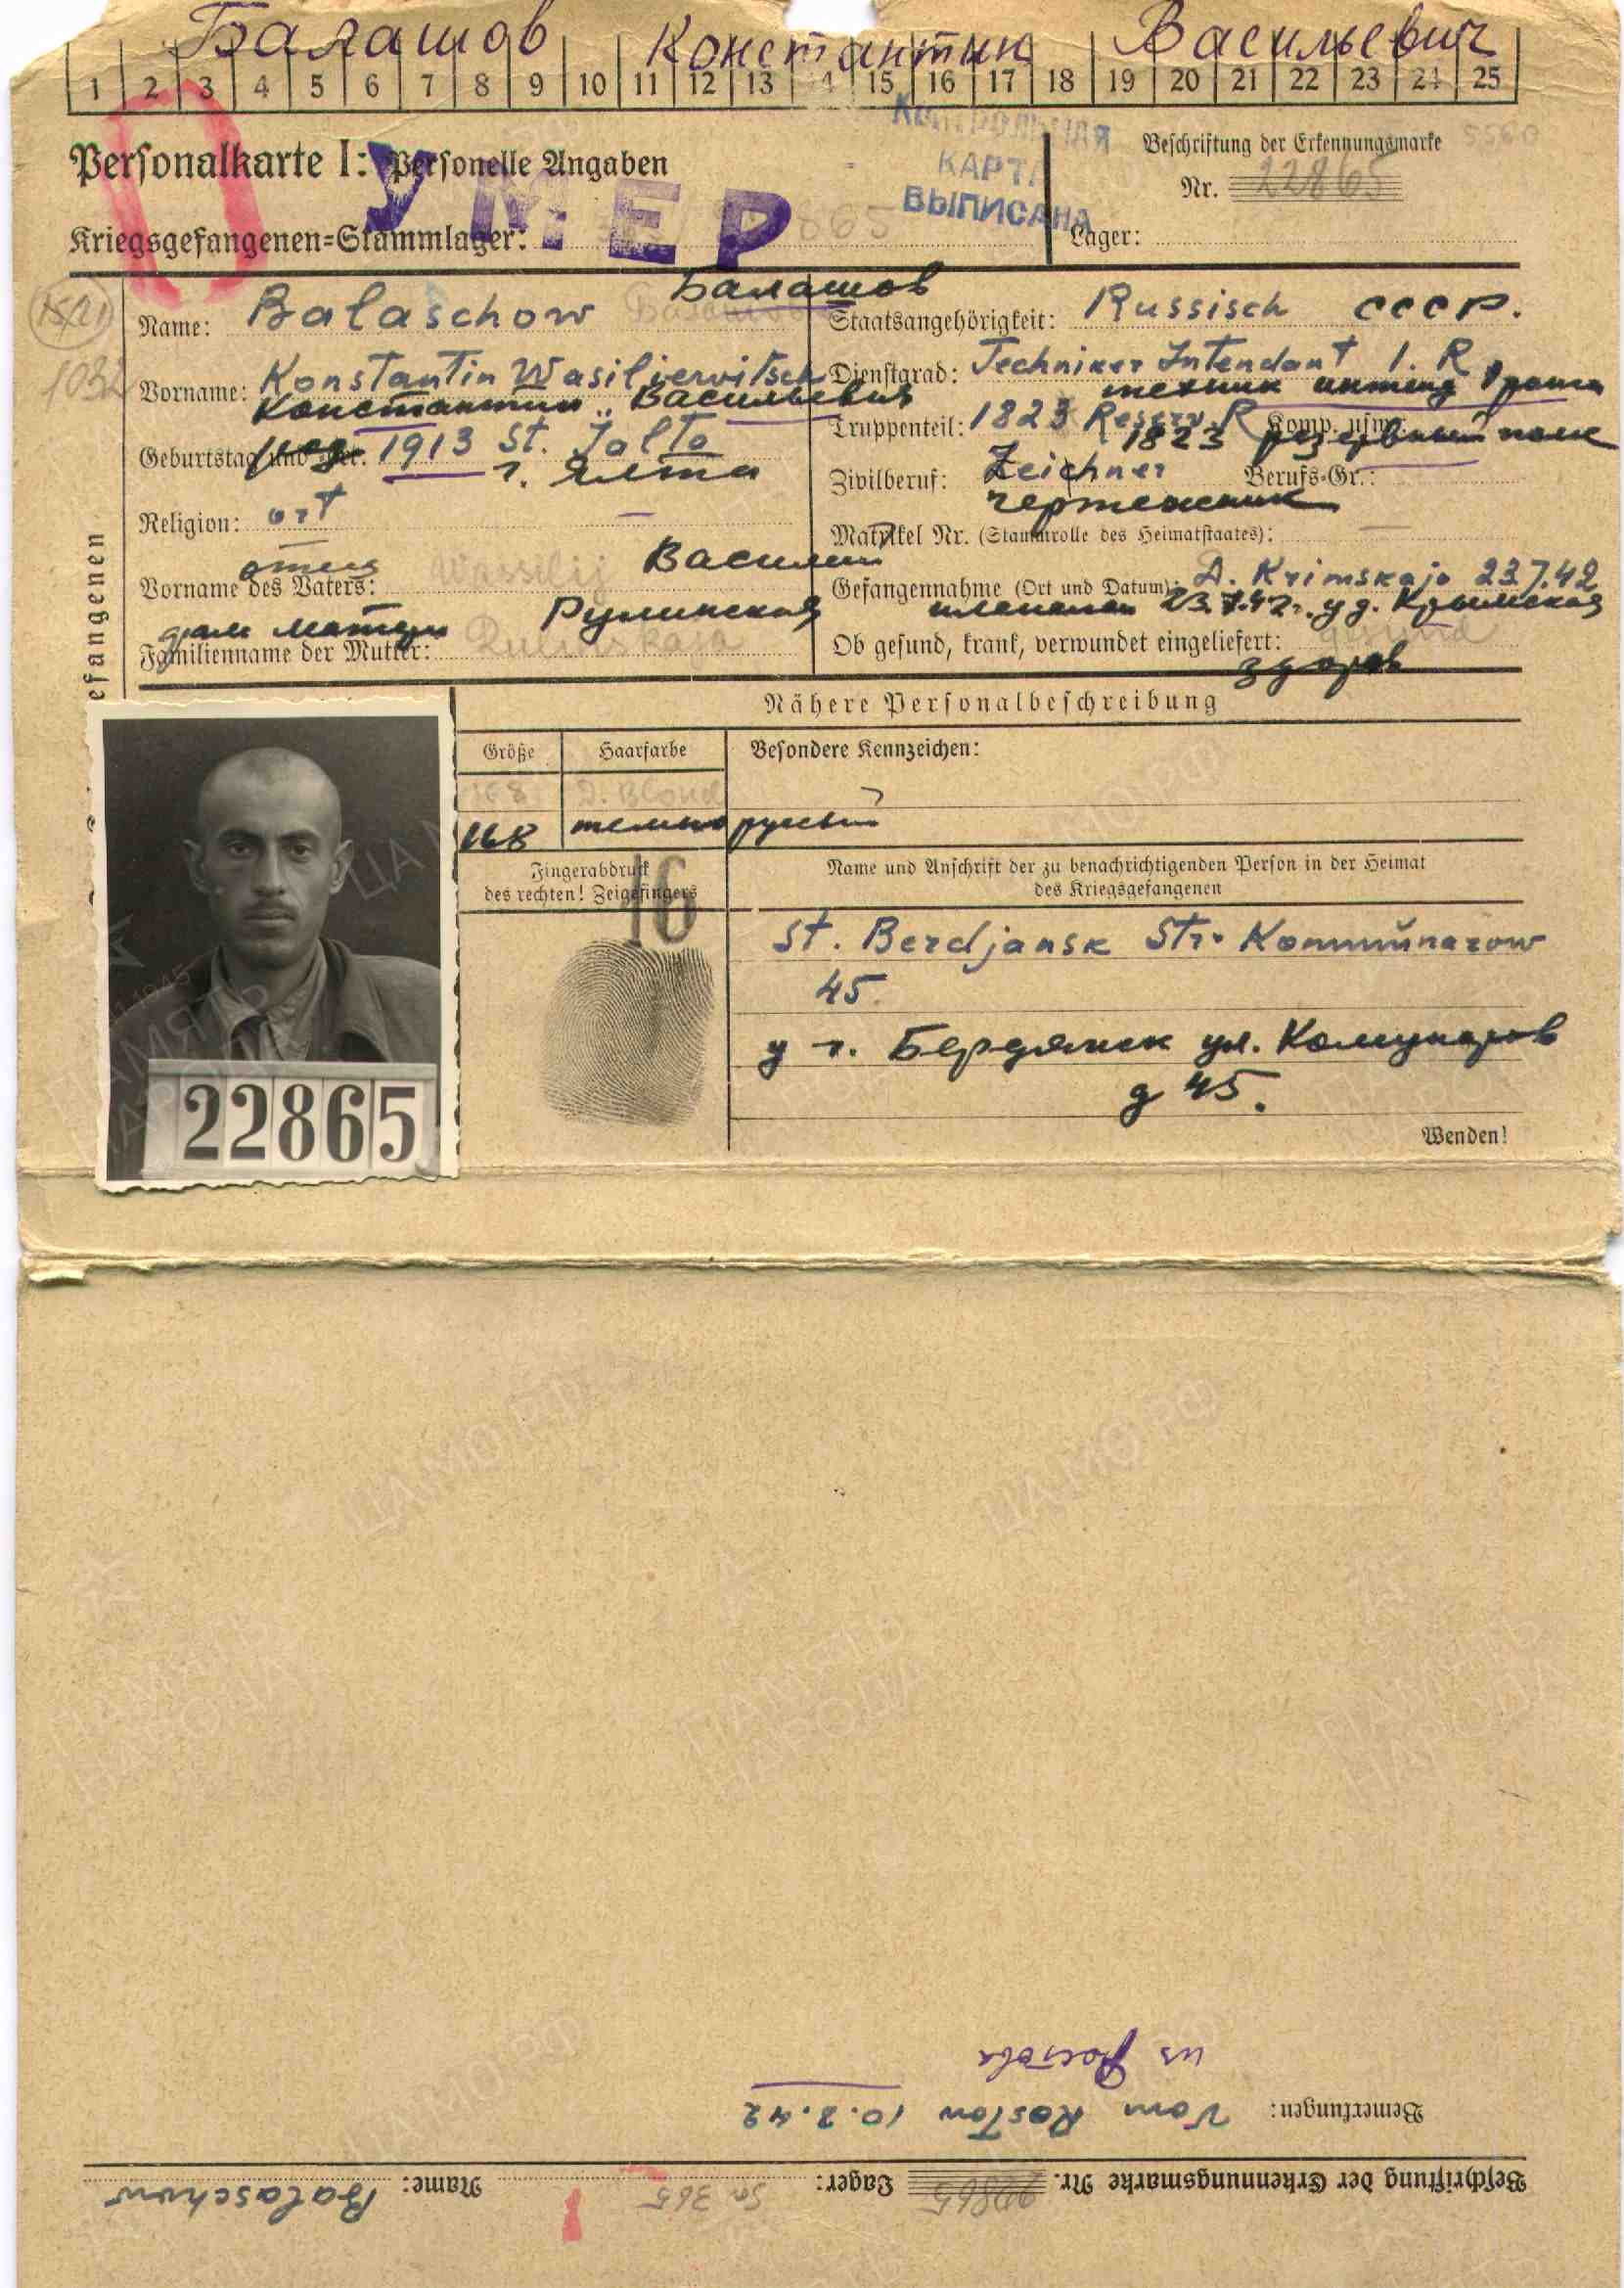 Балашов Константин Васильевич
1 2 3 4 5 6 7 8 9 10 11 12 13 14 15 16 17 18 19 20 21 22 23 24 25
КОНТРОЛЬНАЯ
КАРТА
ВЫПИСАНА
Personalkarte I: Personelle Angaben
УМЕР
Kriegsgefangenen=Stammlager:
Beschriftung der Erkennungsmarke
Nr. 22865
Lager:
efangenen
Балашов
Name: Balaschow
Vorname: Konstantin Wasiliewitsch
Константин Васильевич
Geburtstag und 1913 St. Jalta
г. Ялта
Religion: ort
отец Василий
Vorname des Vaters: Wassilij
фам матери Рулинская
Familienname der Mutter: Rulinskaja
Staatsangehörigkeit: Russisch СССР.
Dienstgrad: Techniker Intendant 1. R
техник интенд 1 ранга
Truppenteil: 1823 Reserv R Komp. usw.:
1823 резервный полк
Zivilberuf: Zeichner Berufs=Gr.:
чертежник
Matrikel Nr. (Stammrolle des Heimatstaates):
Gefangennahme (Ort und Datum): D. Krimskaja 23.7.42
пленен 23.7.42г. у д. Крымская
Ob gesund, krank, verwundet eingeliefert: gesund
здоров
Nähere Personalbeschreibung
Größe Haarfarbe Besondere Kennzeichen:
168 D. Blond
168 темно русый
Fingerabdruck
des rechten! Zeigefingers
16
Name und Anschrift der zu benachrichtigenden Person in der Heimat
des Kriegsgefangenen
St. Berdjansk Str. Kommunarow
45
г. Бердянск ул. Комунаров
д 45.
Wenden!
22865
из Ростова
Bemerkungen: Vom Rostow 10.2.42
Beschriftung der Erkennungsmarke Nr. 22865 Lager: 365 Name: Balaschow
ЦАМО РФ
ПАМЯТЬ
НАРОДА